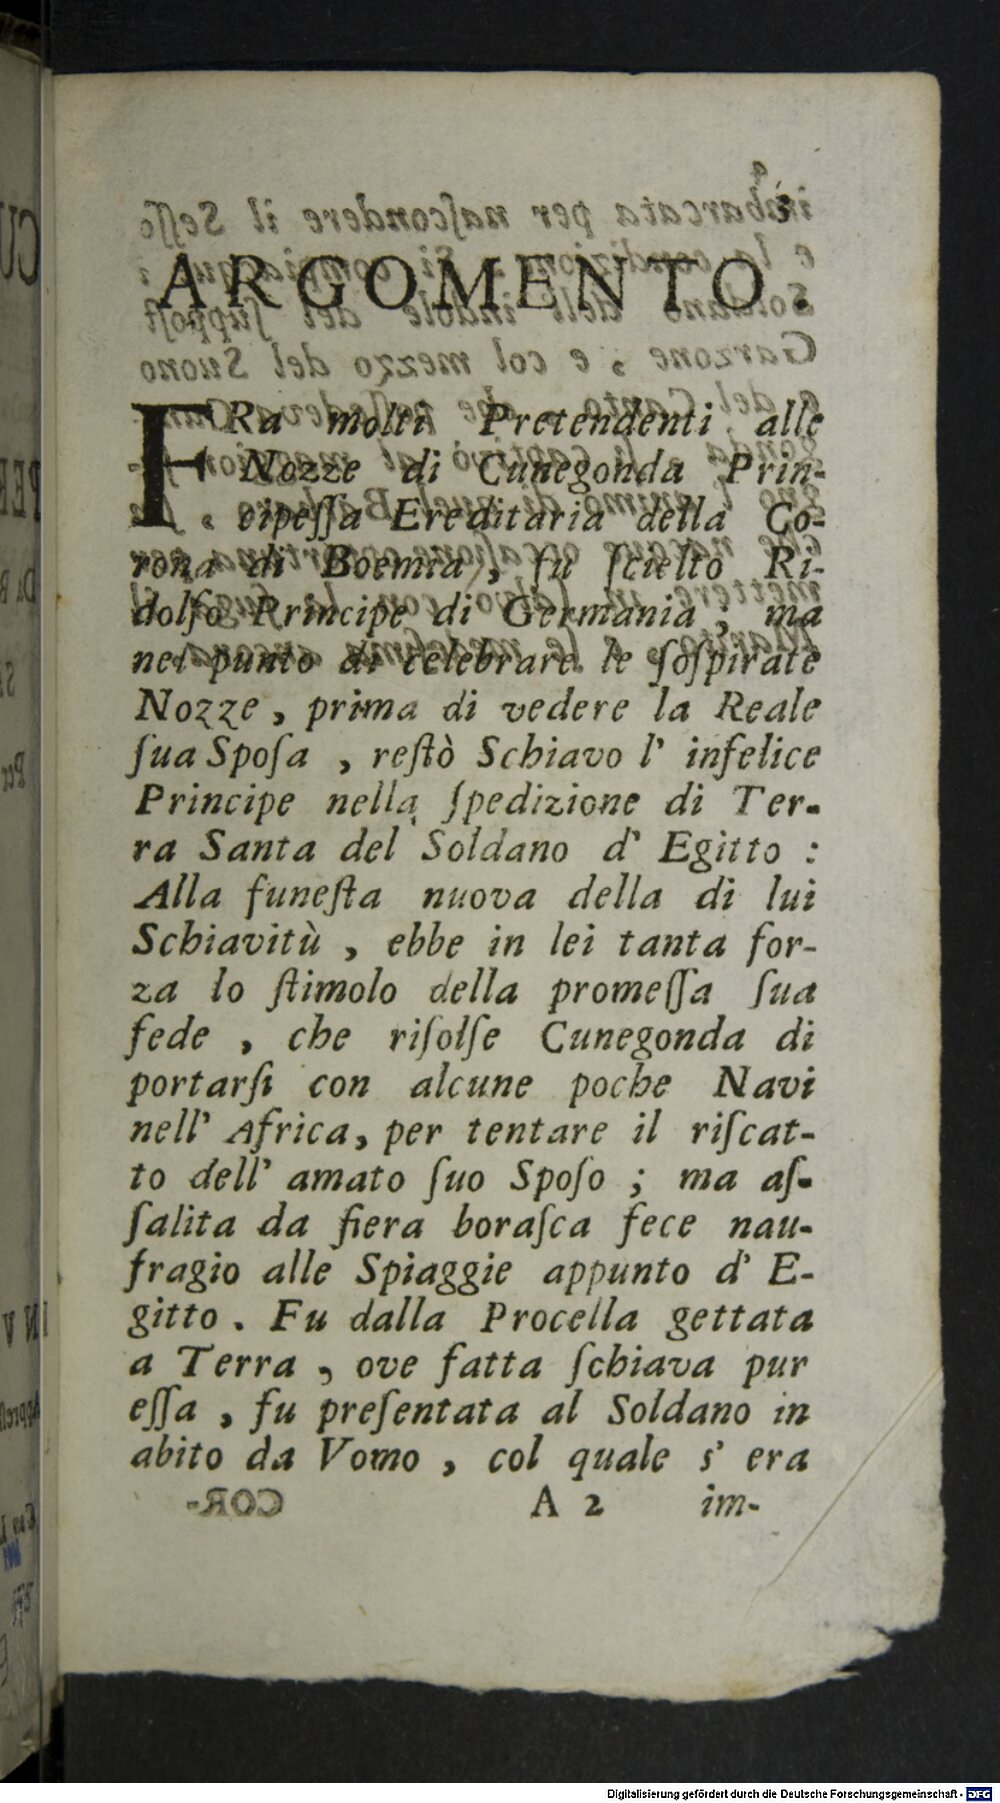 3
ARGOMENTO.
FRa molti Pretendenti alle
Nozze di Cunegonda Prin-
cipeſſa Ereditaria della Co-
rona di Boemia, fu ſcielto Ri-
dolfo Principe di Germania; ma
nel punto di celebrare le ſoſpirate
Nozze, prima di vedere la Reale
ſua Spoſa, reſtò Schiavo l' infelice
Principe nella ſpedizione di Ter-
ra Santa del Soldano d' Egitto:
Alla funeſta nuova della di lui
Schiavitù, ebbe in lei tanta for-
za lo ſtimolo della promeſſa ſua
fede, che riſolſe Cunegonda di
portarſi con alcune poche Navi
nell' Africa, per tentare il riſcat-
to dell' amato ſuo Spoſo; ma aſ-
ſalita da fiera boraſca fece nau-
fragio alle Spiaggie appunto d' E-
gitto. Fu dalla Procella gettata
a Terra, ove fatta ſchiava pur
eſſa, fu preſentata al Soldano in
abito da Vomo, col quale s' era
A 2 im-
Digitalisierung gefördert durch die Deutsche Forschungsgemeinschaft - DFG